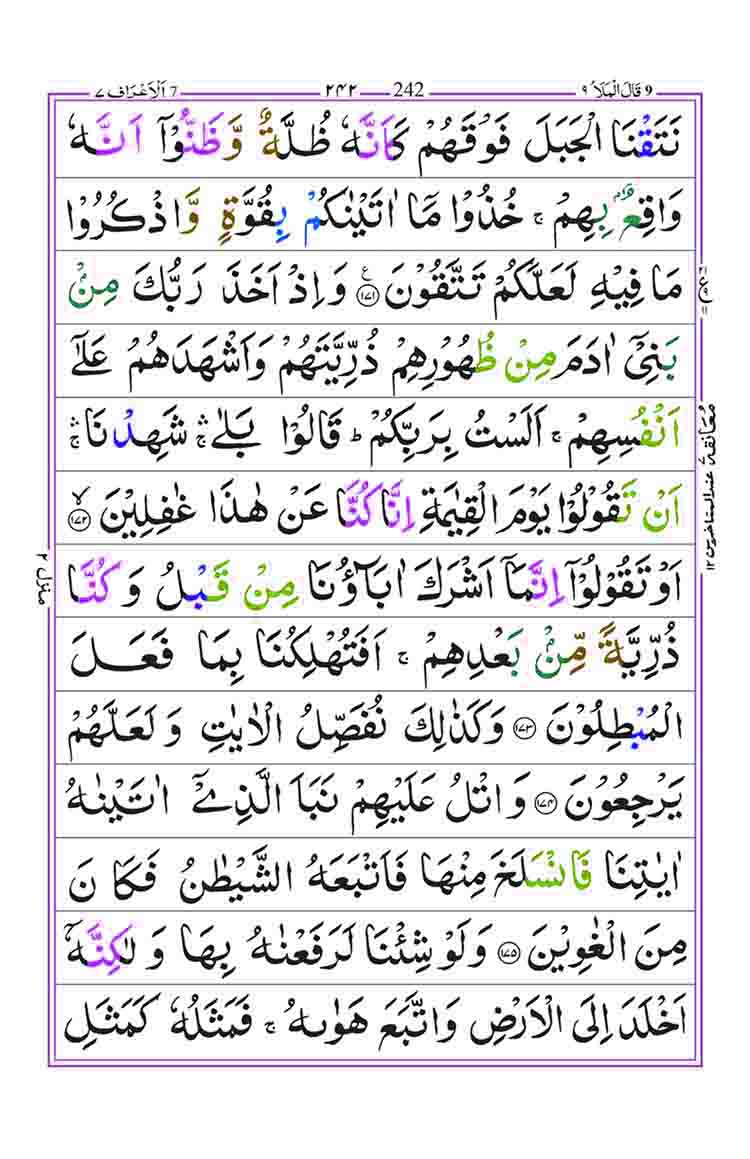 9 قَالَ الْمَلَاُ ٩ 242 ٢٤٢ 7 اَلْاَعْرَاف ٧
نَتَقْنَا الْجَبَلَ فَوْقَهُمْ كَاَنَّهٗ ظُلَّةٌ وَّظَنُّوْۤا اَنَّهٗ
وَاقِعٌۢ بِهِمْ ۚ خُذُوْا مَاۤ اٰتَيْنٰكُمْ بِقُوَّةٍ وَّاذْكُرُوْا
مَا فِيْهِ لَعَلَّكُمْ تَتَّقُوْنَ ﴿۱۷۱﴾ ع وَاِذْ اَخَذَ رَبُّكَ مِنْۢ
بَنِيْۤ اٰدَمَ مِنْ ظُهُوْرِهِمْ ذُرِّيَّتَهُمْ وَاَشْهَدَهُمْ عَلٰۤى
اَنْفُسِهِمْ ۚ اَلَسْتُ بِرَبِّكُمْ ؕ قَالُوْا بَلٰى ۛۚ شَهِدْنَا ۛۚ
اَنْ تَقُوْلُوْا يَوْمَ الْقِيٰمَةِ اِنَّا كُنَّا عَنْ هٰذَا غٰفِلِيْنَ ﴿۱۷۲﴾ ۙ
اَوْ تَقُوْلُوْۤا اِنَّمَاۤ اَشْرَكَ اٰبَآؤُنَا مِنْ قَبْلُ وَكُنَّا
ذُرِّيَّةً مِّنْۢ بَعْدِهِمْ ۚ اَفَتُهْلِكُنَا بِمَا فَعَلَ
الْمُبْطِلُوْنَ ﴿۱۷۳﴾ وَكَذٰلِكَ نُفَصِّلُ الْاٰيٰتِ وَلَعَلَّهُمْ
يَرْجِعُوْنَ ﴿۱۷۴﴾ وَاتْلُ عَلَيْهِمْ نَبَاَ الَّذِيْۤ اٰتَيْنٰهُ
اٰيٰتِنَا فَانْسَلَخَ مِنْهَا فَاَتْبَعَهُ الشَّيْطٰنُ فَكَانَ
مِنَ الْغٰوِيْنَ ﴿۱۷۵﴾ وَلَوْ شِئْنَا لَرَفَعْنٰهُ بِهَا وَلٰكِنَّهٗۤ
اَخْلَدَ اِلَى الْاَرْضِ وَاتَّبَعَ هَوٰىهُ ۚ فَمَثَلُهٗ كَمَثَلِ
معانقة ٧ عند المتاخرین ١٢
منزل ٢